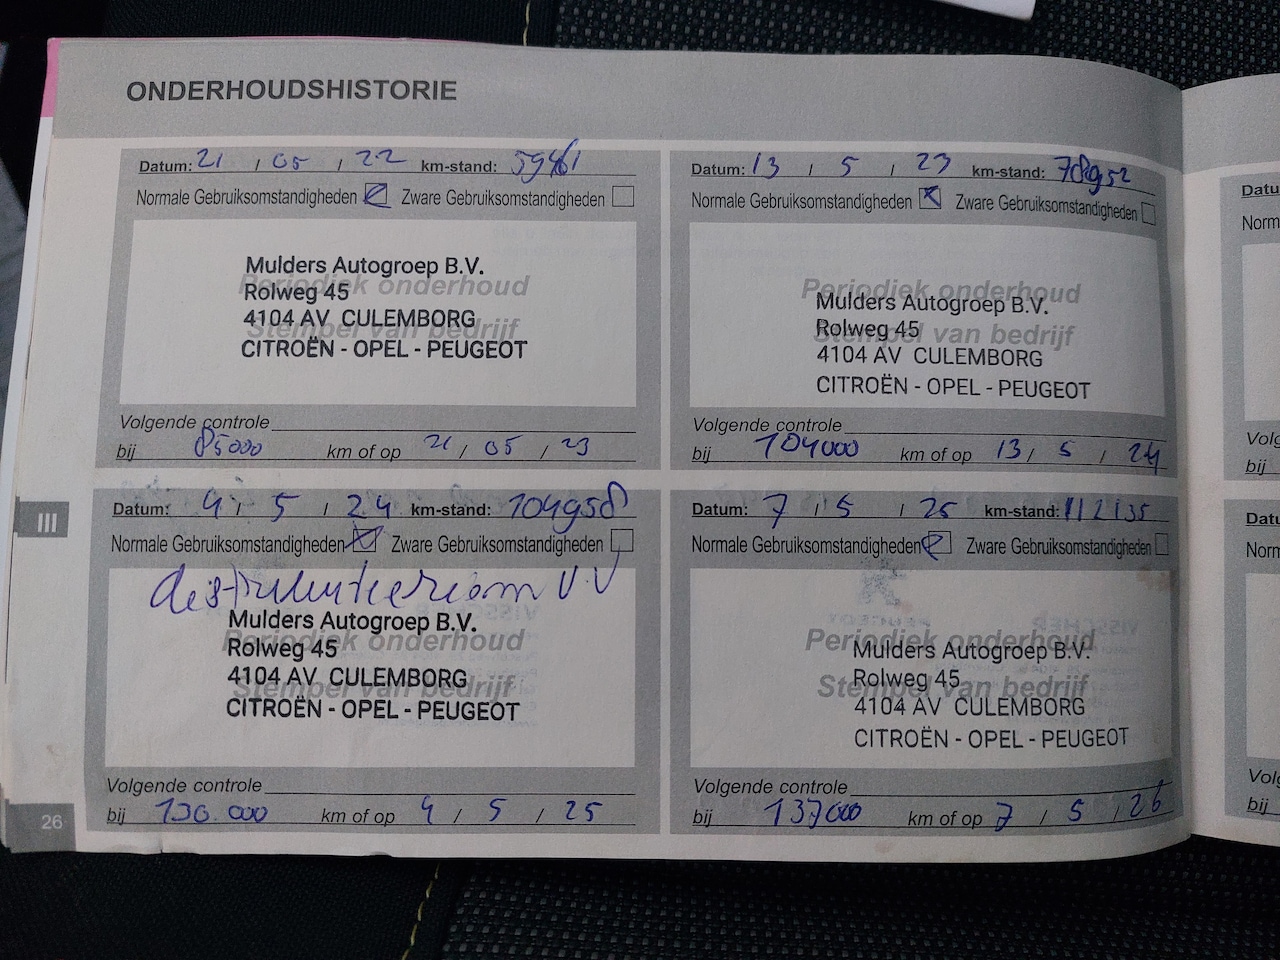 ONDERHOUDSHISTORIE
Datum: 21 / 05 / 22 km-stand:
Normale Gebruiksomstandigheden Zware Gebruiksomstandigheden
Periodiek onderhoud
Stempel van bedrijf
Mulders Autogroep B.V.
Rolweg 45
4104 AV CULEMBORG
CITROËN - OPEL - PEUGEOT
Volgende controle
bij 85000 km of op 21 / 05 / 23
Datum: 13 / 5 / 23 km-stand: 78952
Normale Gebruiksomstandigheden Zware Gebruiksomstandigheden
Periodiek onderhoud
Stempel van bedrijf
Mulders Autogroep B.V.
Rolweg 45
4104 AV CULEMBORG
CITROËN - OPEL - PEUGEOT
Volgende controle
bij 104000 km of op 13 / 5 / 24
III
Datum: 4 / 5 / 24 km-stand: 104958
Normale Gebruiksomstandigheden Zware Gebruiksomstandigheden
distributieriem V.V
Periodiek onderhoud
Stempel van bedrijf
Mulders Autogroep B.V.
Rolweg 45
4104 AV CULEMBORG
CITROËN - OPEL - PEUGEOT
Volgende controle
bij 130.000 km of op 4 / 5 / 25
Datum: 7 / 5 / 25 km-stand: 112135
Normale Gebruiksomstandigheden Zware Gebruiksomstandigheden
Periodiek onderhoud
Stempel van bedrijf
Mulders Autogroep B.V.
Rolweg 45
4104 AV CULEMBORG
CITROËN - OPEL - PEUGEOT
Volgende controle
bij 137000 km of op 7 / 5 / 26
26
Datu
Norm
Volg
bij
Datu
Norm
Volg
bij